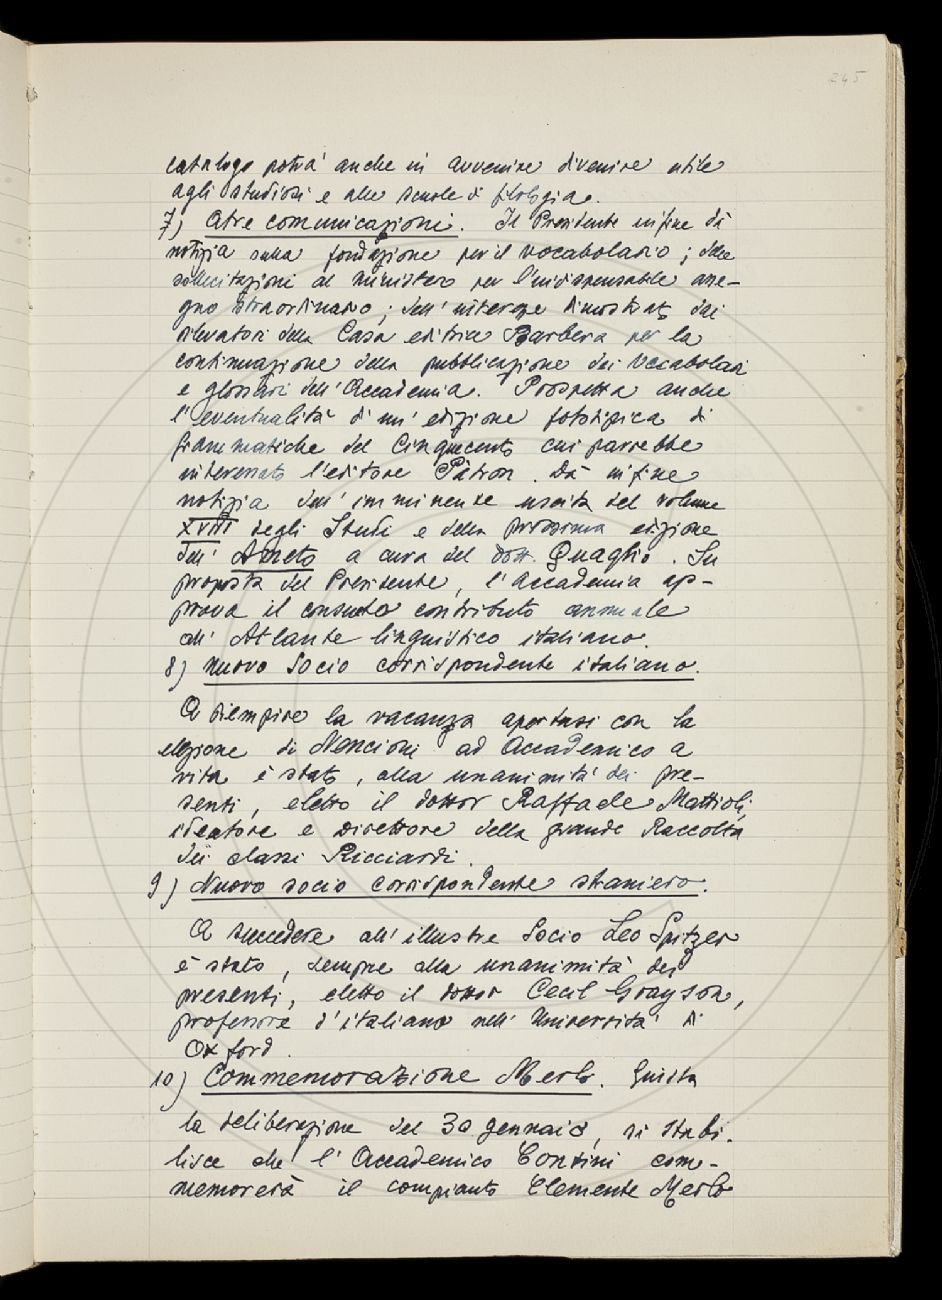 245
catalogo potrà anche in avvenire divenire utile
agli studiosi e alle scuole di filologia.
7) Altre comunicazioni. Il Presidente infine dà
notizia sulla fondazione per il vocabolario; delle
sollecitazioni al Ministero per l'indispensabile asse-
gno straordinario; dell'interesse dimostrato dai
rilevatori della Casa editrice Barbera per la
continuazione della pubblicazione dei Vocabolari
e glossari dell'Accademia. Prospetta anche
l'eventualità d'un'edizione fototipica di
Grammatiche del Cinquecento cui parrebbe
interessato l'editore Pàtron. Dà infine
notizia dell'imminente uscita del volume
XVIII degli Studi e della prossima edizione
dell'Ameto a cura del dott. Quaglio. Su
proposta del Presidente, l'Accademia ap-
prova il consueto contributo annuale
all'Atlante linguistico italiano.
8) Nuovo Socio corrispondente italiano.
A riempire la vacanza apertasi con la
elezione di Nencioni ad Accademico a
vita è stato, alla unanimità dei pre-
senti, eletto il dottor Raffaele Mattioli,
ideatore e Direttore della grande Raccolta
dei classi Ricciardi.
9) Nuovo socio corrispondente straniero.
A succedere all'illustre Socio Leo Spitzer
è stato, sempre alla unanimità dei
presenti, eletto il dottor Cecil Grayson,
professore d'italiano nell'Università di
Oxford.
10) Commemorazione Merlo. Giusta
la deliberazione del 30 gennaio, si stabi-
lisce che l'Accademico Contini com-
memorerà il compianto Clemente Merlo